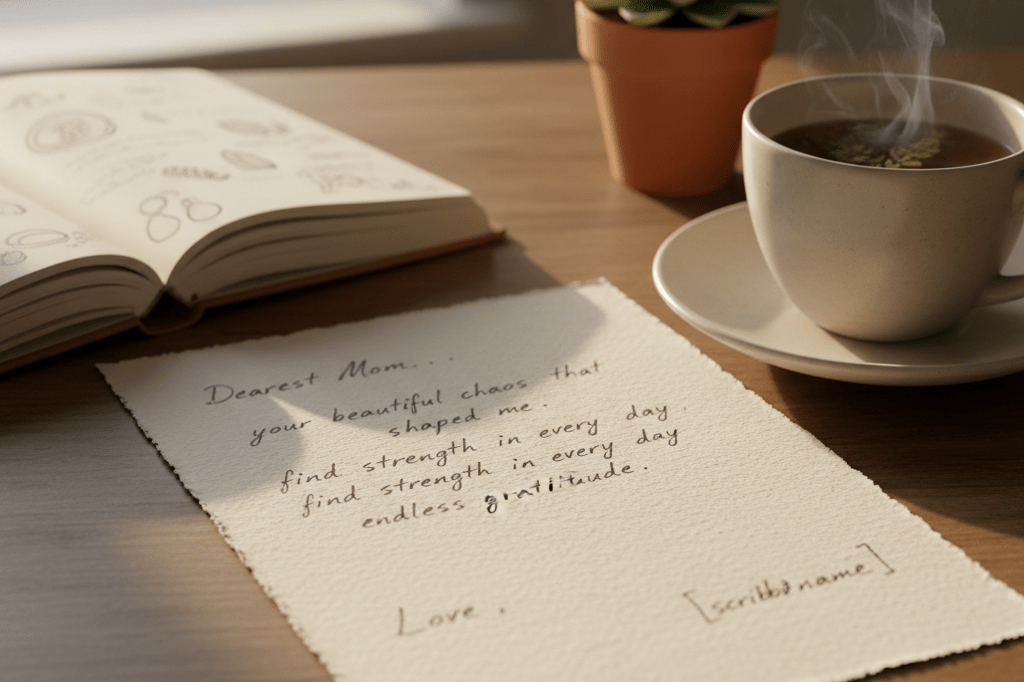 Dearest Mom...
your beautiful chaos that
shaped me.
find strength in every day.
find strength in every day
endless
Love,